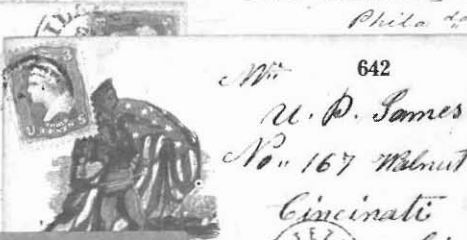 Phila
Mr
642
U. P. James
No. 167 Walnut
Cincinati
U S